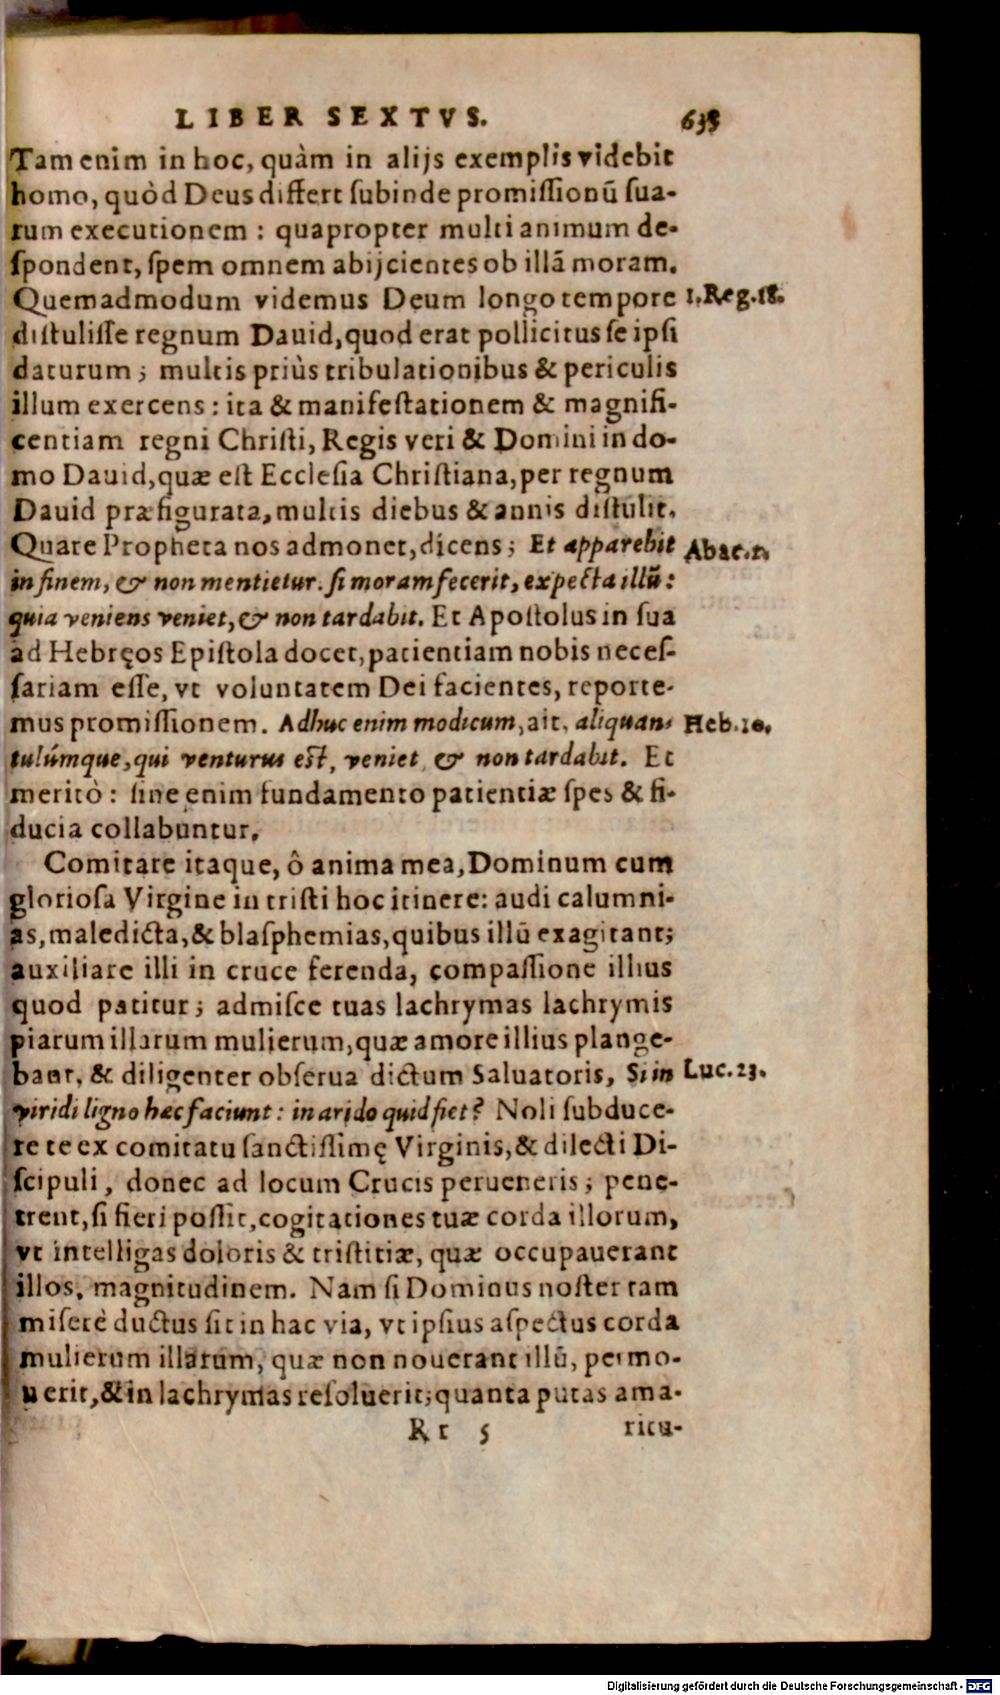 LIBER SEXTVS. 635
Tam enim in hoc, quàm in alijs exemplis videbit
homo, quòd Deus differt ſubinde promiſſionũ ſua-
rum executionem : quapropter multi animum de-
ſpondent, ſpem omnem abijcientes ob illã moram.
Quemadmodum videmus Deum longo tempore 1.Reg.18.
diſtuliſſe regnum Dauid, quod erat pollicitus ſe ipſi
daturum ; multis priùs tribulationibus & periculis
illum exercens : ita & manifeſtationem & magnifi-
centiam regni Chriſti, Regis veri & Domini in do-
mo Dauid, quæ eſt Eccleſia Chriſtiana, per regnum
Dauid præfigurata, multis diebus & annis diſtulit.
Quare Propheta nos admonet, dicens ; Et apparebit Abac.2.
in finem, & non mentietur. ſi moram fecerit, expecta illũ :
quia veniens veniet, & non tardabit. Et Apoſtolus in ſua
ad Hebręos Epiſtola docet, patientiam nobis neceſ-
ſariam eſſe, vt voluntatem Dei facientes, reporte-
mus promiſſionem. Adhuc enim modicum, ait, aliquan- Heb.10.
tulúmque, qui venturus eſt, veniet & non tardabit. Et
meritò : ſine enim fundamento patientiæ ſpes & fi-
ducia collabuntur.
Comitare itaque, ô anima mea, Dominum cum
glorioſa Virgine in triſti hoc itinere: audi calumni-
as, maledicta, & blaſphemias, quibus illũ exagitant;
auxiliare illi in cruce ferenda, compaſſione illius
quod patitur ; admiſce tuas lachrymas lachrymis
piarum illarum mulierum, quæ amore illius plange-
bant, & diligenter obſerua dictum Saluatoris, Si in Luc.23.
viridi ligno hæc faciunt : in arido quid fiet? Noli ſubduce-
re te ex comitatu ſanctiſſimę Virginis, & dilecti Di-
ſcipuli, donec ad locum Crucis perueneris ; pene-
trent, ſi fieri poſſit, cogitationes tuæ corda illorum,
vt intelligas doloris & triſtitiæ, quæ occupauerant
illos, magnitudinem. Nam ſi Dominus noſter tam
miſerè ductus ſit in hac via, vt ipſius aſpectus corda
mulierum illarum, quæ non nouerant illũ, permo-
uerit, & in lachrymas reſoluerit; quanta putas ama-
Rr 5 ritu-
Digitalisierung gefördert durch die Deutsche Forschungsgemeinschaft - DFG